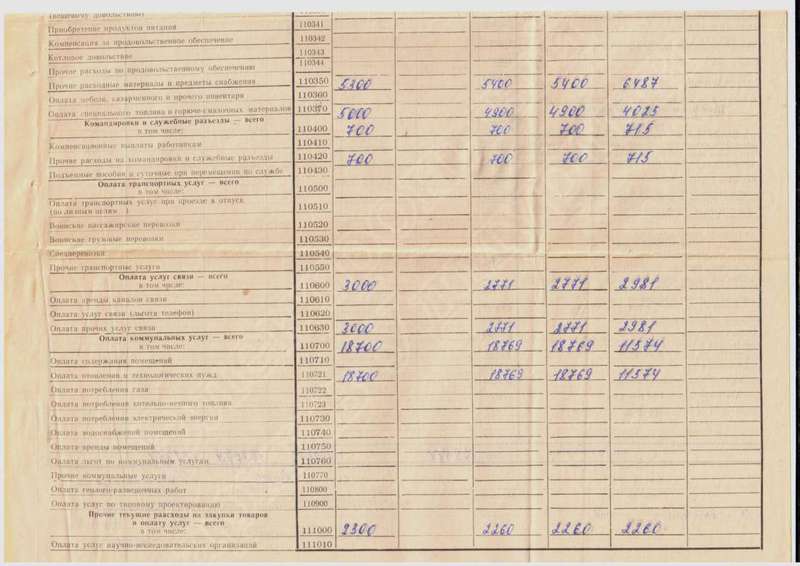 (вещевому довольствию)
Приобретение продуктов питания 110341
Компенсация за продовольственное обеспечение 110342
Котловое довольствие 110343
Прочие расходы по продовольственному обеспечению 110344
Прочие расходные материалы и предметы снабжения 110350 5300 5400 5400 6487
Оплата мебели, казарменного и прочего инвентаря 110360
Оплата специального топлива и горюче-смазочных материалов 110370 5000 4900 4900 4025
Командировки и служебные разъезды — всего
в том числе: 110400 700 700 700 715
Компенсационные выплаты работникам 110410
Прочие расходы на командировки и служебные разъезды 110420 700 700 700 715
Подъемные пособия и суточные при перемещении по службе 110430
Оплата транспортных услуг — всего
в том числе: 110500
Оплата транспортных услуг при проезде в отпуск
(по личным целям ) 110510
Воинские пассажирские перевозки 110520
Воинские грузовые перевозки 110530
Спецперевозки 110540
Прочие транспортные услуги 110550
Оплата услуг связи — всего
в том числе: 110600 3000 2771 2771 2981
Оплата аренды каналов связи 110610
Оплата услуг связи (льгота телефон) 110620
Оплата прочих услуг связи 110630 3000 2771 2771 2981
Оплата коммунальных услуг — всего
в том числе: 110700 18700 18769 18769 11574
Оплата содержания помещений 110710
Оплата отопления и технологических нужд 110721 18700 18769 18769 11574
Оплата потребления газа 110722
Оплата потребления котельно-печного топлива 110723
Оплата потребления электрической энергии 110730
Оплата водоснабжения помещений 110740
Оплата аренды помещений 110750
Оплата льгот по коммунальным услугам 110760
Прочие коммунальные услуги 110770
Оплата геолого-разведочных работ 110800
Оплата услуг по типовому проектированию 110900
Прочие текущие расходы на закупки товаров
и оплату услуг — всего
в том числе: 111000 2300 2260 2260 2260
Оплата услуг научно-исследовательских организаций 111010